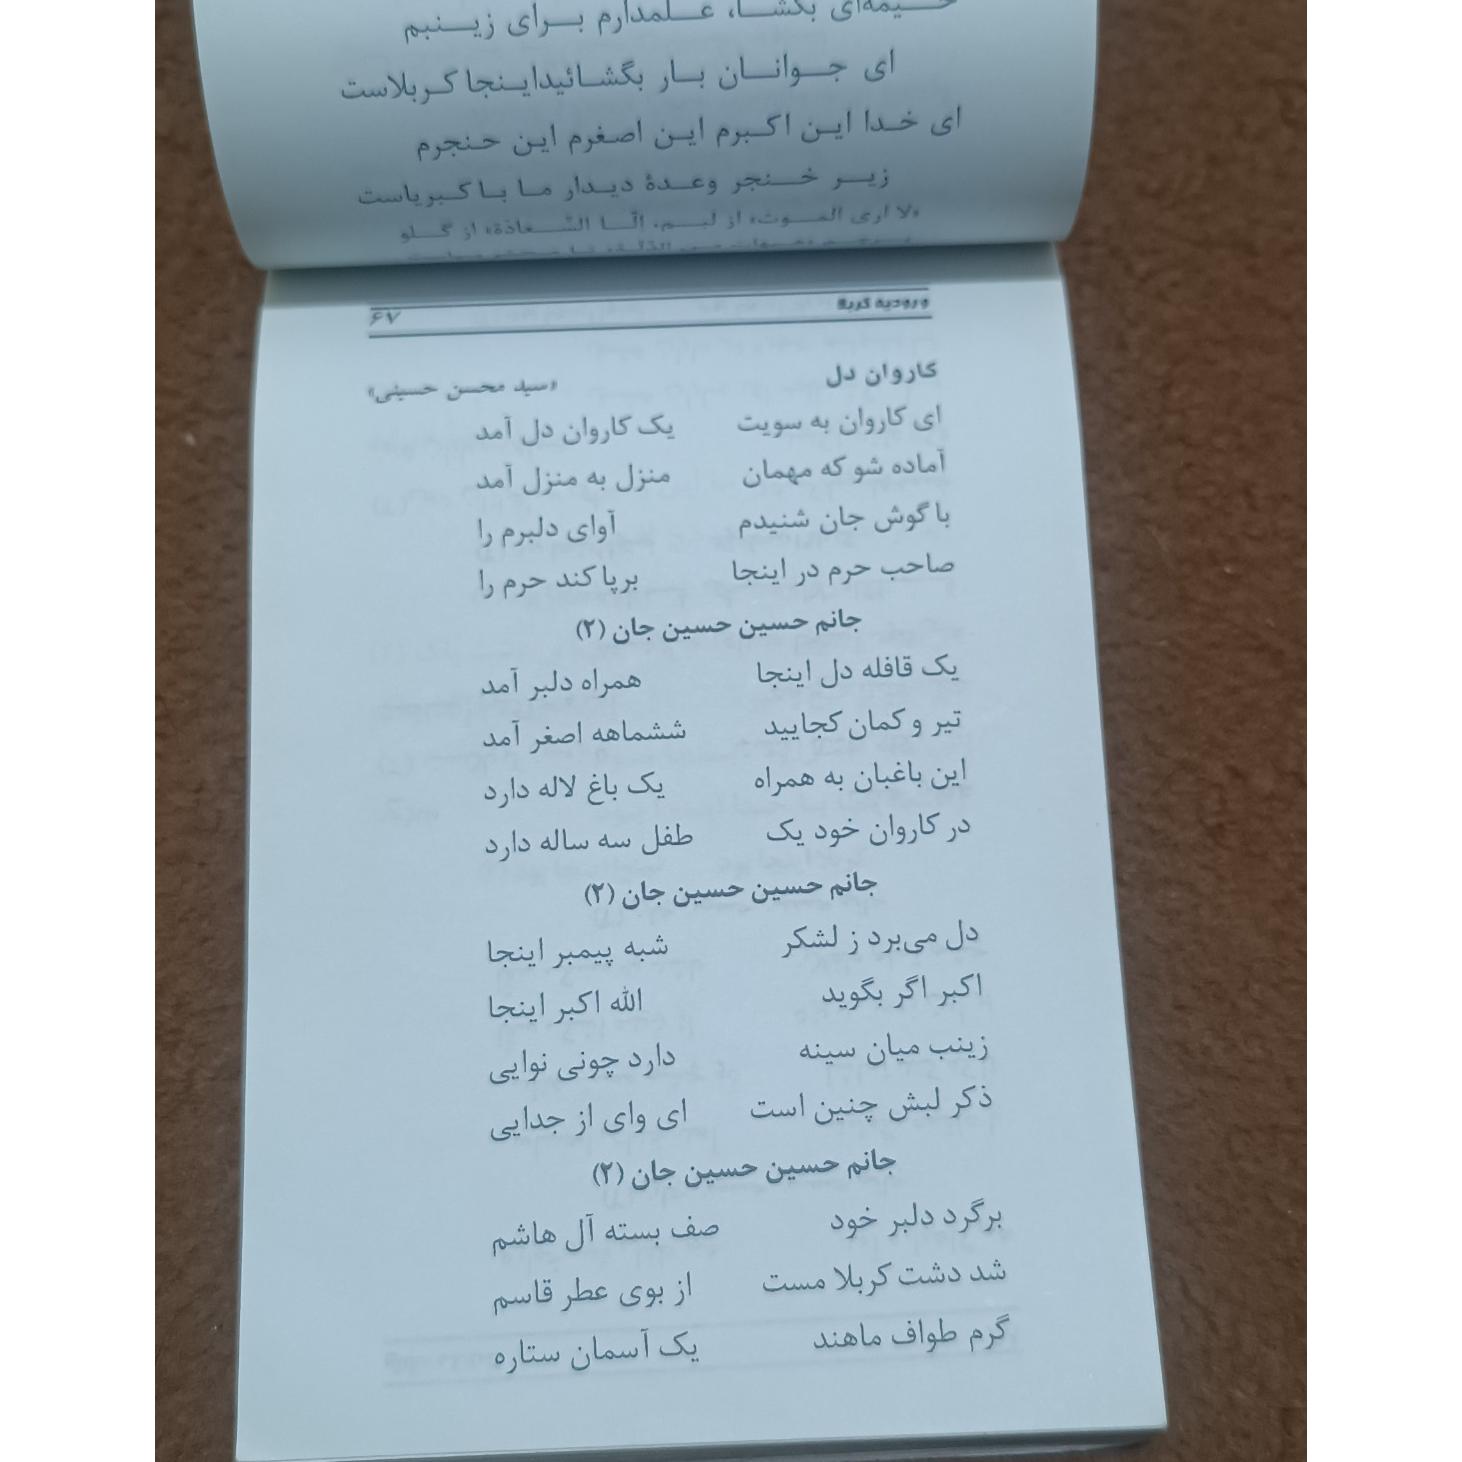 خـــیمه‌ای بگشـــا، عـــلمدارم بـــرای زیـــنبم
ای جـــوانـــان بـــار بگشـــائیداینـجا کـربلاست
ای خـدا ایـن اکـبرم ایـن اصـغرم ایـن حـنجرم
زیـــر خـــنجر وعـــدۀ دیـدار مـا بـا کـبریاست
«لا اری المـــوت» از لبـــم، اِلّـــا السَّـــعادَة» از گـــلو
ورودیه کربلا ۶۷
کاروان دل «سید محسن حسینی»
ای کاروان به سویت یک کاروان دل آمد
آماده شو که مهمان منزل به منزل آمد
با گوش جان شنیدم آوای دلبرم را
صاحب حرم در اینجا برپا کند حرم را
جانم حسین حسین جان (۲)
یک قافله دل اینجا همراه دلبر آمد
تیر و کمان کجایید ششماهه اصغر آمد
این باغبان به همراه یک باغ لاله دارد
در کاروان خود یک طفل سه ساله دارد
جانم حسین حسین جان (۲)
دل می‌برد ز لشکر شبه پیمبر اینجا
اکبر اگر بگوید الله اکبر اینجا
زینب میان سینه دارد چونی نوایی
ذکر لبش چنین است ای وای از جدایی
جانم حسین حسین جان (۲)
برگرد دلبر خود صف بسته آل هاشم
شد دشت کربلا مست از بوی عطر قاسم
گرم طواف ماهند یک آسمان ستاره